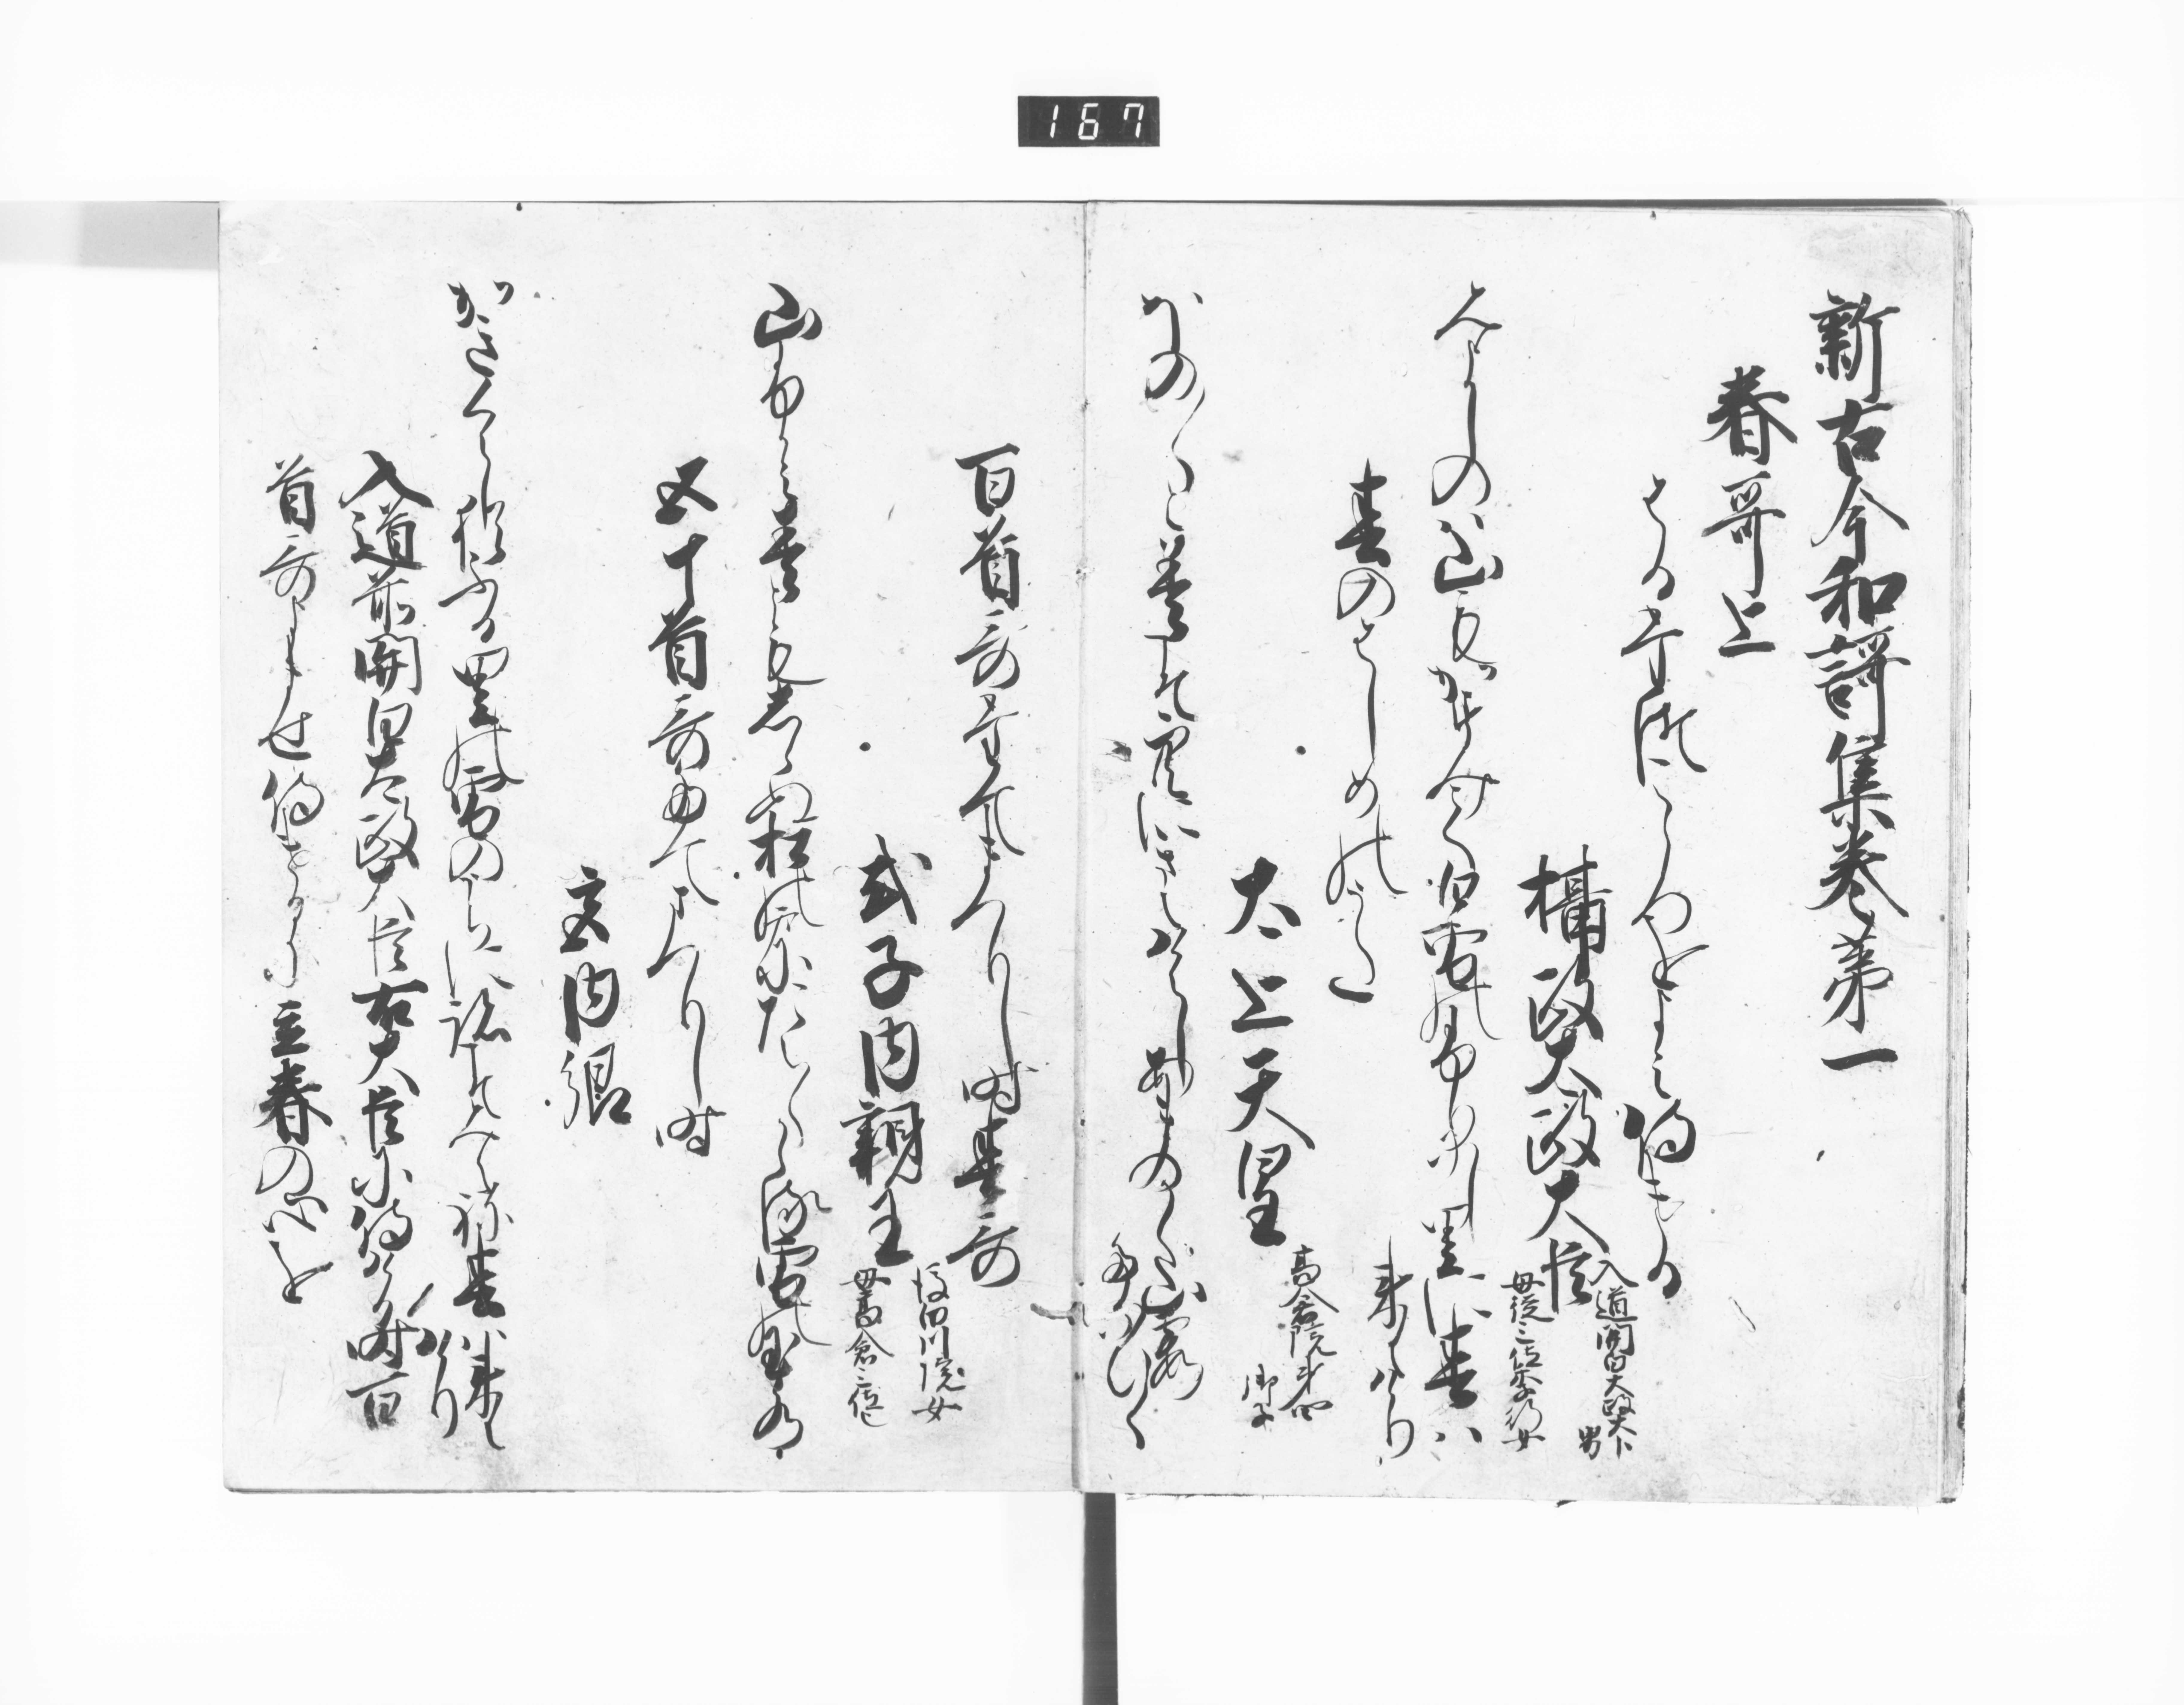 167
新古今和謌集巻第一
春哥上
はる立心をよみ侍ける
摂政太政大臣
入道関白太政大臣男
母従三位季行女
みよしのは山もかすみて白雪のふりにし里に春は
来にけり
春のはしめのうた
太上天皇
高倉院第四
御子
ほの〱と春こそ空にきにけらしあまのかく山霞
たなひく
百首哥たてまつりし時春哥
式子内親王
後白川院女
母高倉三位
山ふかみ春ともしらぬ松の戸にたえ〱かゝる雪の玉水
五十首哥たてまつりし時
宮内卿
かきくらし猶ふる里の雪のうちに跡こそみえね春は来に
けり
入道前関白太政大臣右大臣に侍ける時百
首哥よませ侍けるに立春の心を